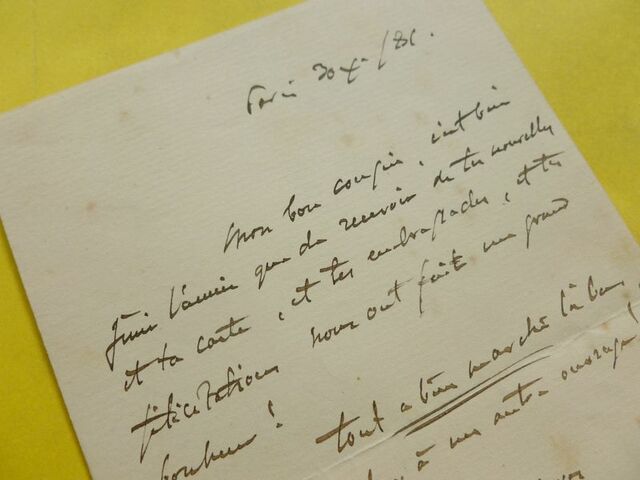 Paris 30 X^e/81.
Mon bon cousin, c'est bien
finir l'année que de recevoir de tes nouvelles
et ta carte, et tes embrassades, et tes
félicitations nous ont fait un grand
bonheur!
tout a bien marché là bas,
à ouvrage